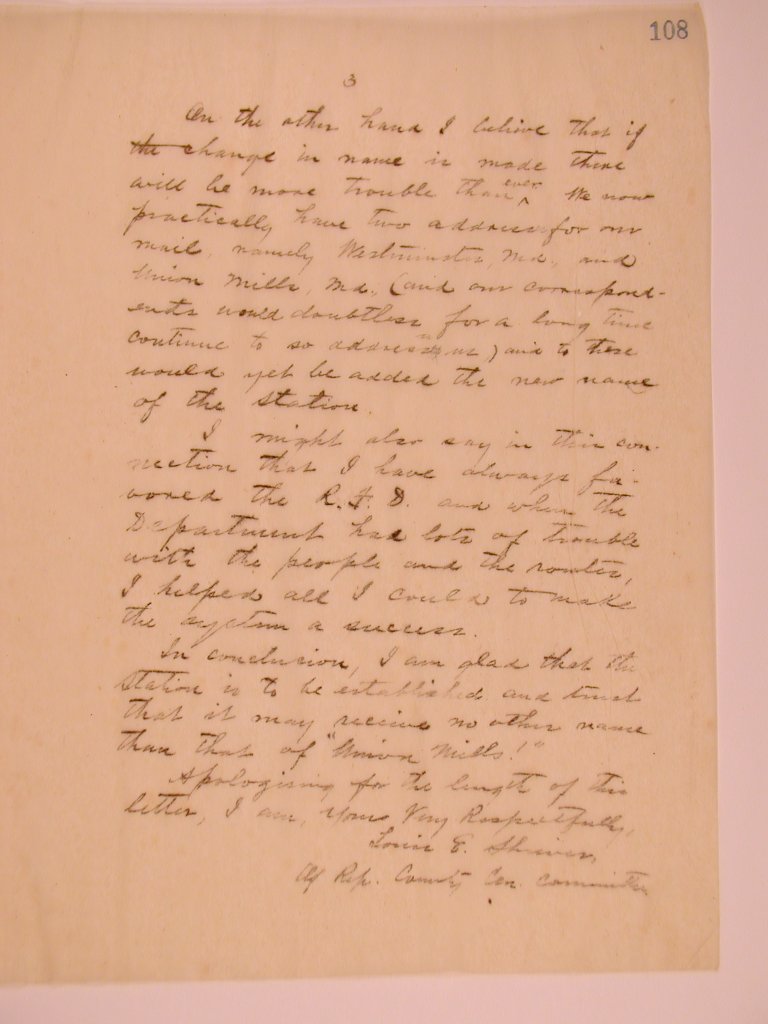 108
3
On the other hand I believe that if
the change in name is made there
will be more trouble than ever. We now
practically have two addresses for our
mail, namely Westminster, Md., and
Union Mills, Md., (and our correspond-
ents would doubtless for a long time
continue to so address us) and to these
would yet be added the new name
of the station.
I might also say in this con-
nection that I have always fa-
vored the R.F.D. and when the
Department had lots of trouble
with the people and the routes,
I helped all I could to make
the system a success.
In conclusion, I am glad that the
station is to be established and trust
that it may receive no other name
than that of "Union Mills!"
Apologising for the length of this
letter, I am, Yours Very Respectfully,
Louis E. Shriver,
Of Rep. County Cen. Committee